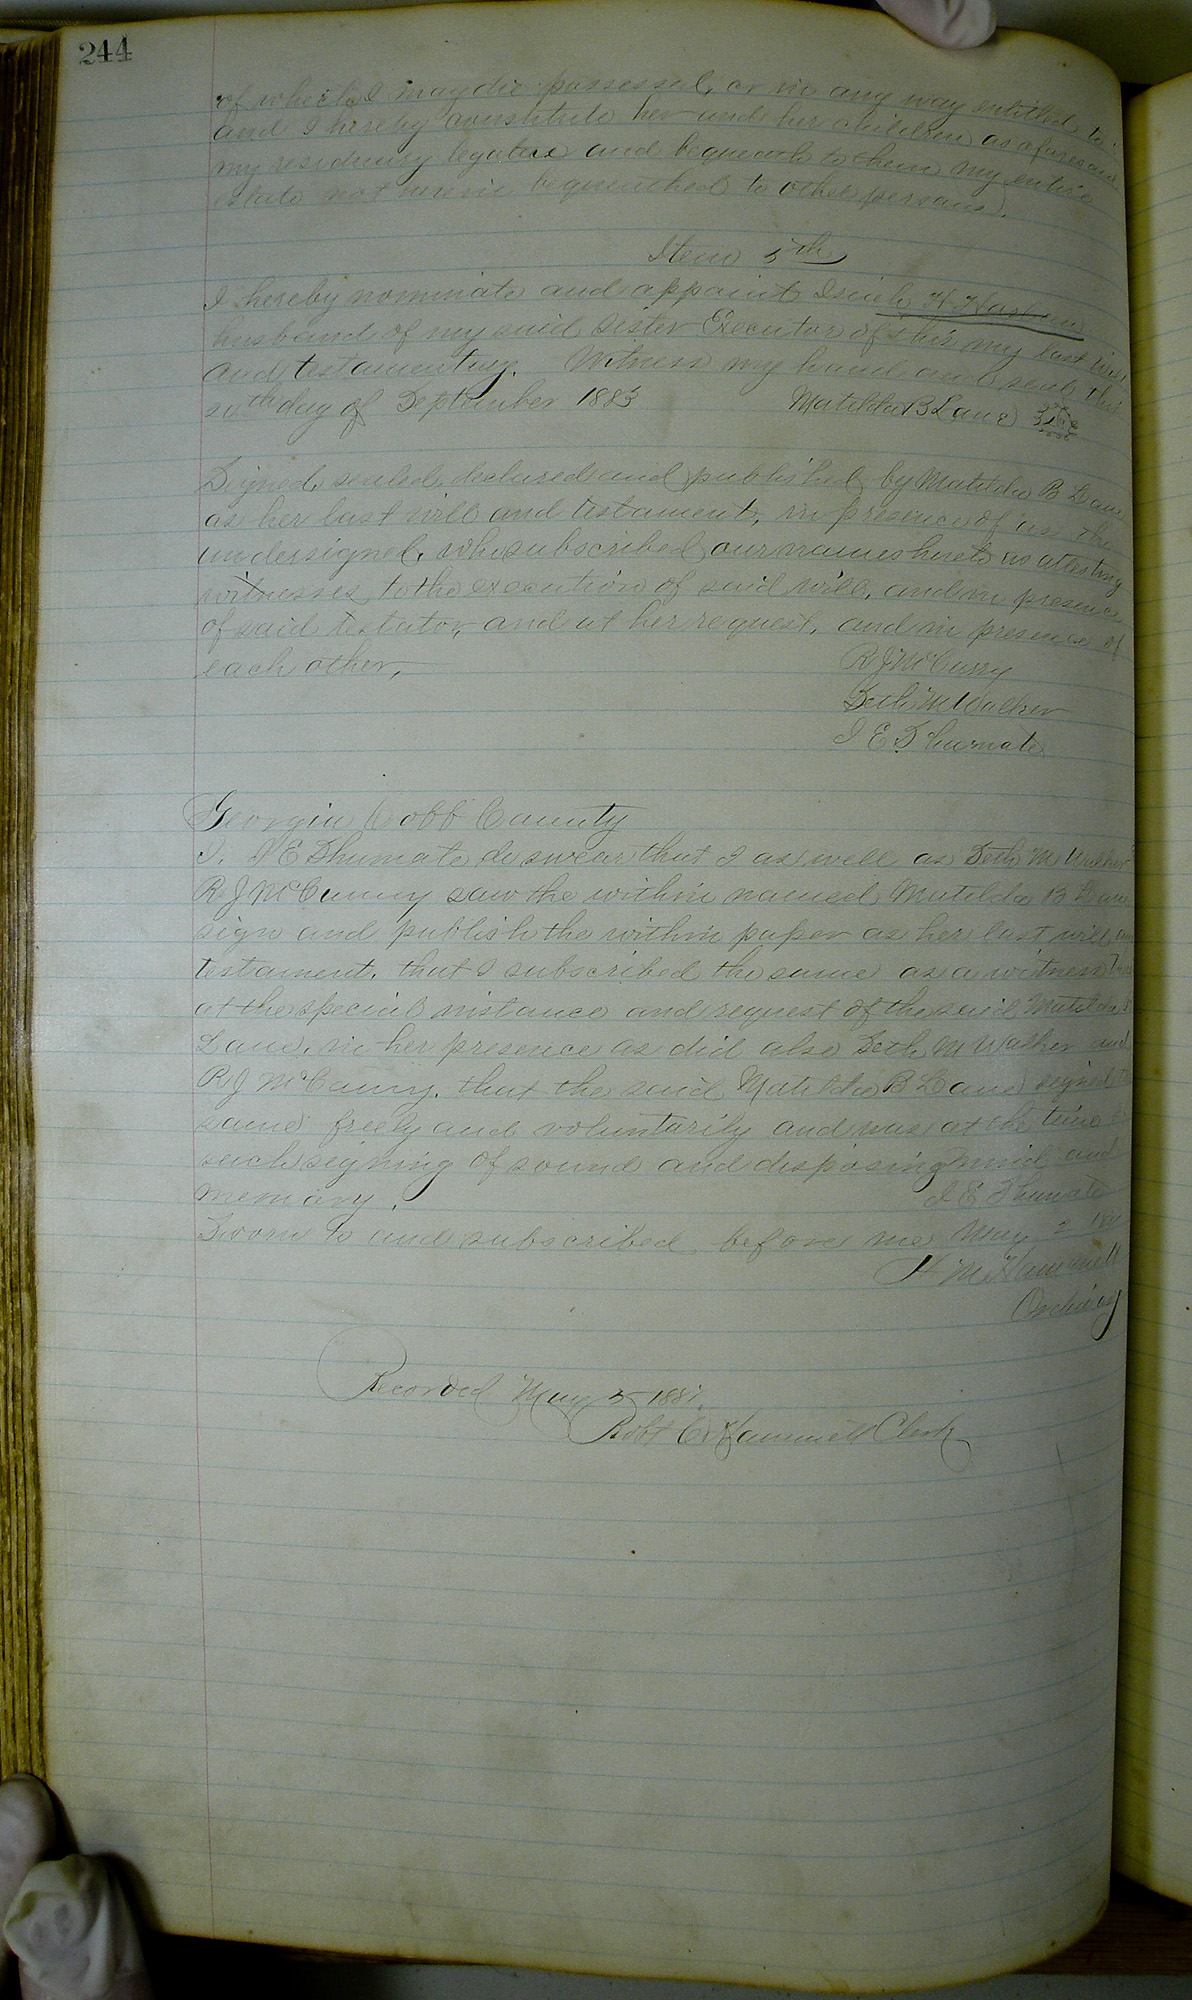 244
of which I may die possessed, or in any way entitled to
and I hereby constitute her and her children as aforesaid
my residuary legatees and bequeath to them my entire
estate not herein bequeathed to other persons.
Item 5th
I hereby nominate and appoint Isiah H
husband of my said sister Executor of this my last will
and testamentary. Witness my hand and seal this
day of September 1883 Matilda B Lane
Signed, sealed, declared and published by Matilda B Lane
as her last will and testament, in presence of us the
undersigned, who subscribed our names hereto as attesting
witnesses to the execution of said will, and in presence
of said testator, and at her request, and in presence of
each other,
R J McCurry
Seth M Walker
I E Shumate
Georgia Cobb County
I, I E Shumate do swear that I as well as Seth M Walker
R J McCurry saw the within named Matilda B Lane
sign and publish the within paper as her last will and
testament, that I subscribed the same as a witness
at the special instance and request of the said Matilda B
Lane, in her presence as did also Seth M Walker and
R J McCurry, that the said Matilda B Lane signed
same freely and voluntarily and was at the time
such signing of sound and disposing mind and
memory. I E Shumate
Sworn to and subscribed before me May 2
H M Hammett
Ordinary
Recorded May 5 1887.
Robt C Hammett Clerk